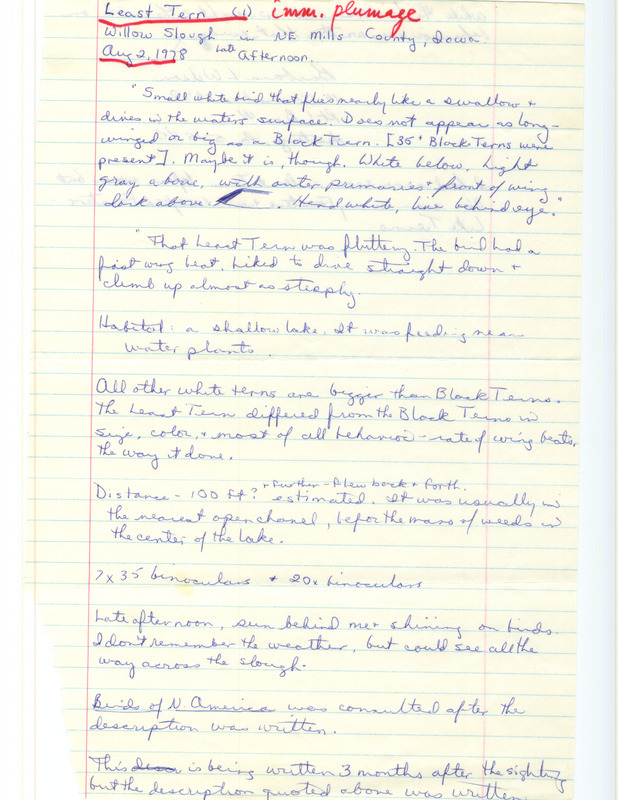 Least Tern (1) imm. plumage
Willow Slough in NE Mills County, Iowa.
Aug 2, 1978 Late Afternoon.
"Small white bird that flies nearly like a swallow +
dives in the water's surface. Does not appear as long-
winged or big as a Black Tern. [35+ Black Terns were
present]. Maybe it is, though. White below, light
gray above, with outer primaries + front of wing
dark above. Head white, line behind eye."
"That Least Tern was fluttery. The bird had a
fast wing beat. Liked to dive straight down +
climb up almost as steeply.
Habitat: a shallow lake. It was feeding near
water plants.
All other white terns are bigger than Black Terns.
The Least Tern differed from the Black Terns in
size, color, + most of all behavior - rate of wing beats,
the way it dove.
+ further - flew back + forth.
Distance - 100 ft? estimated. It was usually in
the nearest open channel, before the mass of weeds in
the center of the lake.
7x35 binoculars + 20x binoculars
Late afternoon, sun behind me + shining on birds.
I don't remember the weather, but could see all the
way across the slough.
Birds of N. America was consulted after the
description was written.
This is being written 3 months after the sighting
but the description quoted above was written